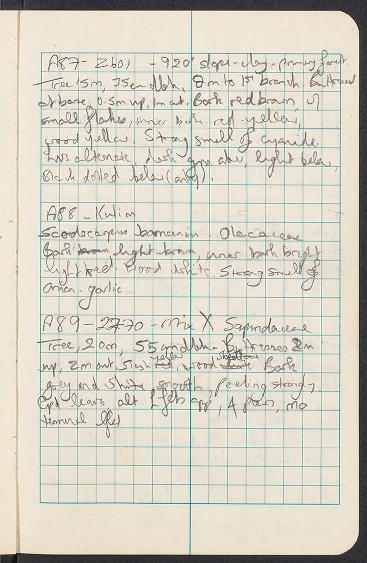 A87 - 2601 - 920' slope - clay - primary forest.
Tree 15m, 35cm dbh, 8m to 1st branch. Buttressed
at base, 0.5m up, 1m out. Bark red brown, w/
small flakes, inner bark red-yellow,
wood yellow. Strong smell of cyanide.
Lvs alternate, dark green abv, light below,
Black dotted below
A88 - Kulim
Scodocarpus borneensis. Olacaceae
Bark brown light brown, inner bark bright
light red. Wood white. Strong smell of
onion-garlic
A89 - 2770 - mix X Sapindaceae
Tree, 20m, 55cm dbh - Buttresses 2m
up, 2m out, flesh yellow, wood Bark
grey and smooth, peeling strongly
Cpd leaves alt, lfts opp, 4 pairs, no
terminal lflet